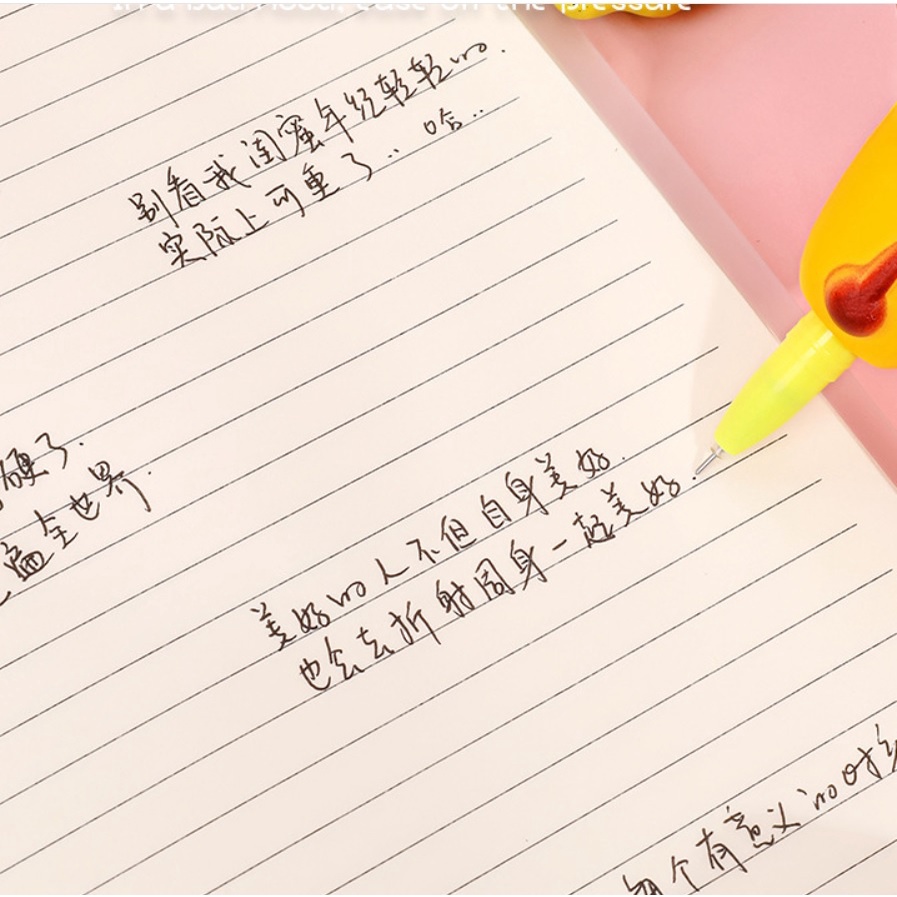 In a bad mood, ease on the pressure
别看我闺蜜年纪轻轻的.
实际上可重了.. 哈..
硬了.
遍全世界.
美好的人不但自身美好.
也会去折射周身一起美好.
每个有意义的时